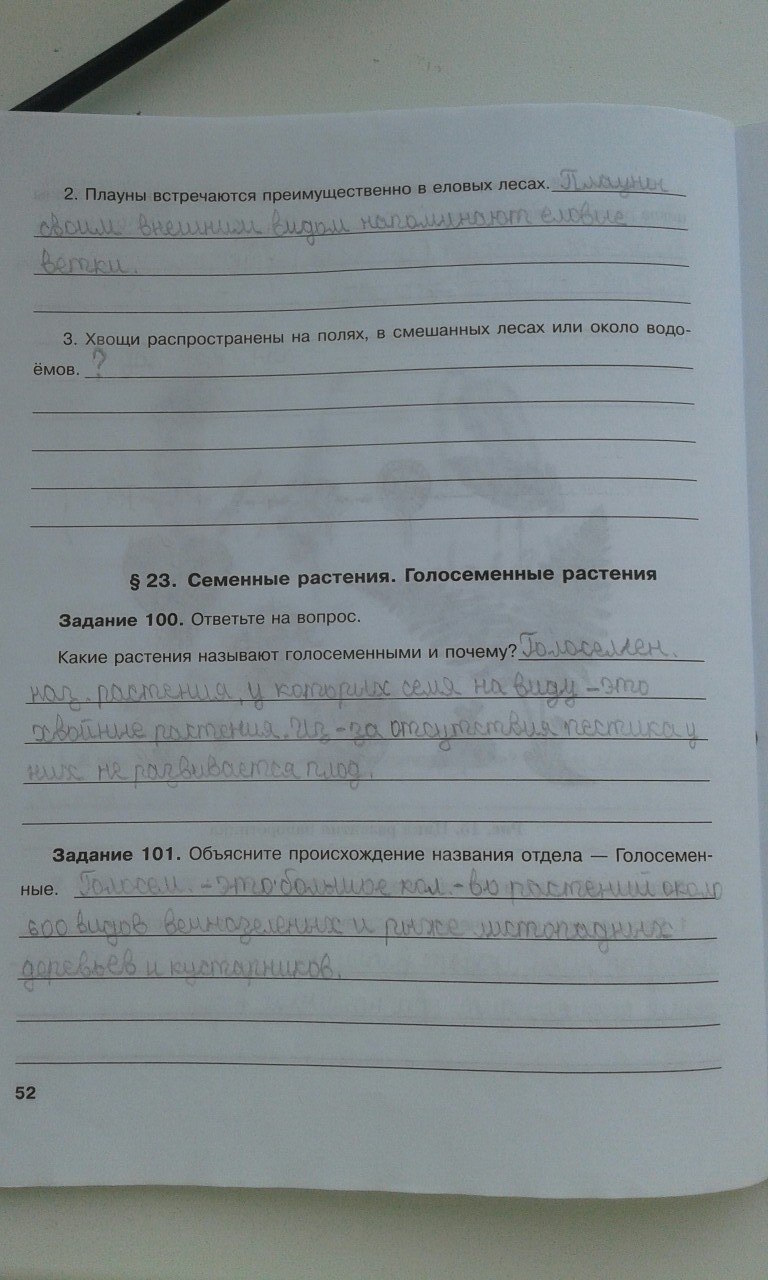 2. Плауны встречаются преимущественно в еловых лесах. Плауны
своим внешним видом напоминают еловые
ветки.
3. Хвощи распространены на полях, в смешанных лесах или около водо-
ёмов. ?
§ 23. Семенные растения. Голосеменные растения
Задание 100. Ответьте на вопрос.
Какие растения называют голосеменными и почему? Голосемен.
наз. растения, у которых семя на виду - это
хвойные растения. Из-за отсутствия пестика у
них не развивается плод.
Задание 101. Объясните происхождение названия отдела — Голосемен-
ные. Голосем. - это большое кол.-во растений около
600 видов вечнозеленых и реже листопадных
деревьев и кустарников.
52